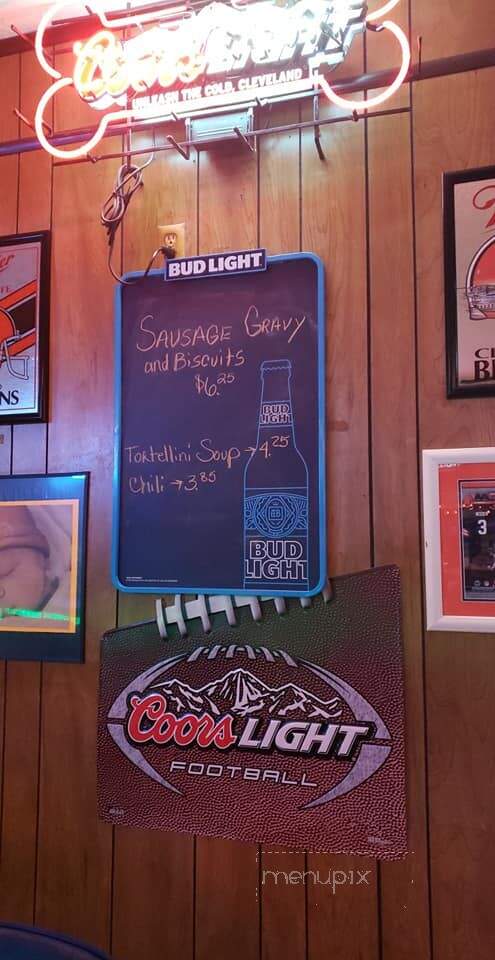 Coors LIGHT
UNLEASH THE COLD, CLEVELAND
BUD LIGHT
SAUSAGE GRAVY
and Biscuits
$6.25
Tortellini Soup → 4.25
Chili → 3.85
BUD
LIGHT
BUD
LIGHT
NS
3
Coors LIGHT
FOOTBALL
menupix